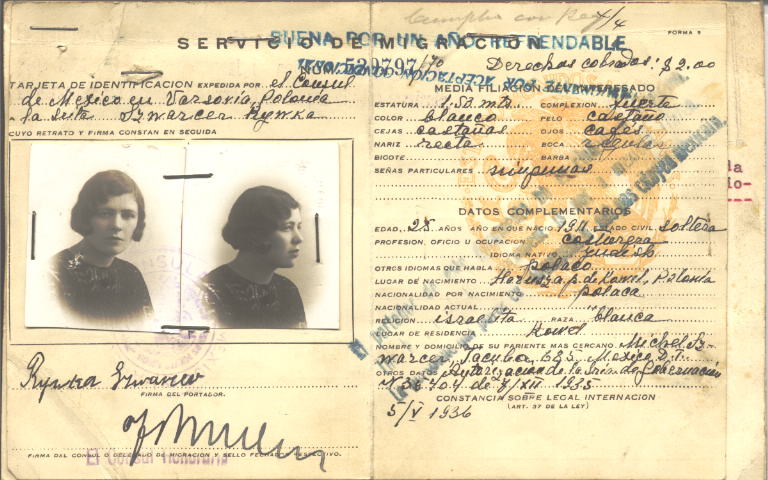 Cumplio con Reg
4/4
FORMA 5
SERVICIO DE MIGRACION
BUENA POR UN AÑO REFRENDABLE
NUM. 539797/70
Derechos cobrados: $2.00
TARJETA DE IDENTIFICACION EXPEDIDA POR el Consul
de Mexico en Varsovia, Polonia
a la Srta Szwarcer Rywka
CUYO RETRATO Y FIRMA CONSTAN EN SEGUIDA
FIRMA DEL PORTADOR.
FIRMA DEL CONSUL O DELEGADO DE MIGRACION Y SELLO FECHADO RESPECTIVO.
El Consul Honorario
MEDIA FILIACION DEL INTERESADO
ESTATURA 1,52 mts. COMPLEXION fuerte
COLOR blanco PELO castaño
CEJAS castañas OJOS cafés
NARIZ recta BOCA regular
BIGOTE BARBA
SEÑAS PARTICULARES ningunas
DATOS COMPLEMENTARIOS
EDAD, 25 AÑOS AÑO EN QUE NACIO 1911 ESTADO CIVIL soltera
PROFESION, OFICIO U OCUPACION costurera
IDIOMA NATIVO yudish
OTROS IDIOMAS QUE HABLA polaco
LUGAR DE NACIMIENTO p. de Kowel, Polonia
NACIONALIDAD POR NACIMIENTO polaca
NACIONALIDAD ACTUAL "
RELIGION israelita RAZA blanca
LUGAR DE RESIDENCIA Kowel
NOMBRE Y DOMICILIO DE SU PARIENTE MAS CERCANO Michel Sz-
warcer, Tacuba 685, Mexico D.F.
OTROS DATOS Autorizacion de la Sria de Gobernación
N 36404 de 7/XII 1935
CONSTANCIA SOBRE LEGAL INTERNACION
(ART. 37 DE LA LEY)
5/V 1936